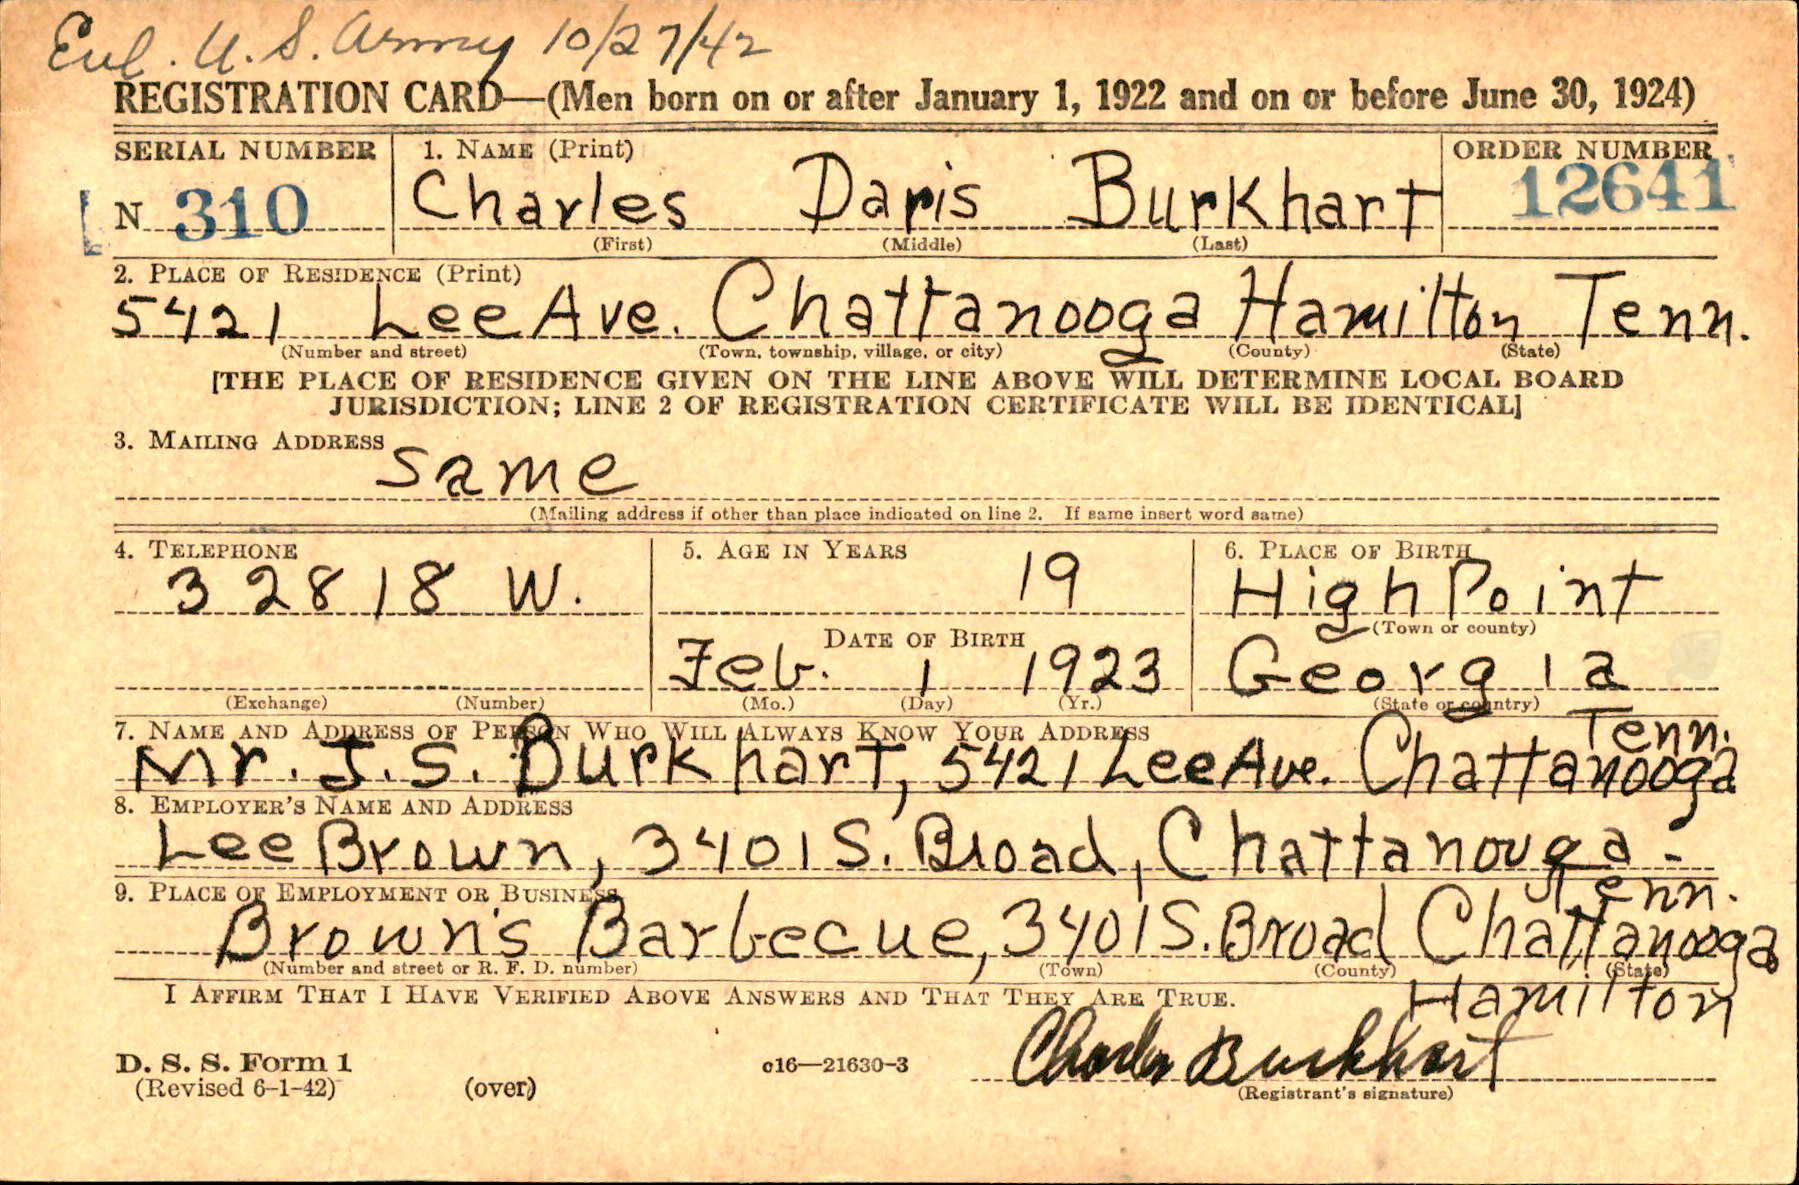 Enl. U. S. Army 10/27/42
REGISTRATION CARD—(Men born on or after January 1, 1922 and on or before June 30, 1924)
SERIAL NUMBER 1. NAME (Print) ORDER NUMBER
N 310 Charles Daris Burkhart 12641
(First) (Middle) (Last)
2. PLACE OF RESIDENCE (Print)
5421 Lee Ave. Chattanooga Hamilton Tenn.
(Number and street) (Town, township, village, or city) (County) (State)
[THE PLACE OF RESIDENCE GIVEN ON THE LINE ABOVE WILL DETERMINE LOCAL BOARD
JURISDICTION; LINE 2 OF REGISTRATION CERTIFICATE WILL BE IDENTICAL]
3. MAILING ADDRESS
Same
(Mailing address if other than place indicated on line 2. If same insert word same)
4. TELEPHONE 5. AGE IN YEARS 6. PLACE OF BIRTH
32818 W. 19 High Point
DATE OF BIRTH (Town or county)
Feb. 1 1923 Georgia
(Exchange) (Number) (Mo.) (Day) (Yr.) (State or country)
7. NAME AND ADDRESS OF PERSON WHO WILL ALWAYS KNOW YOUR ADDRESS Tenn.
Mr. J. S. Burkhart, 5421 Lee Ave. Chattanooga
8. EMPLOYER'S NAME AND ADDRESS
Lee Brown, 3401 S. Broad, Chattanouga -
9. PLACE OF EMPLOYMENT OR BUSINESS Tenn.
Brown's Barbecue, 3401 S. Broad Chattanooga
(Number and street or R. F. D. number) (Town) (County) (State)
I AFFIRM THAT I HAVE VERIFIED ABOVE ANSWERS AND THAT THEY ARE TRUE. Hamilton
D. S. S. Form 1 c16—21630-3 Charles Burkhart
(Revised 6-1-42) (over) (Registrant's signature)